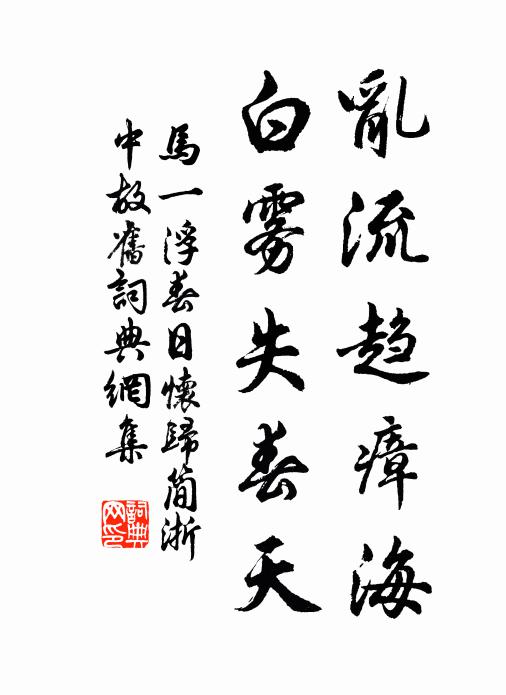 亂流趨瘴海
白雾失春天
馬一浮春日懷歸簡浙
中故舊詞典網集
詞典
网印